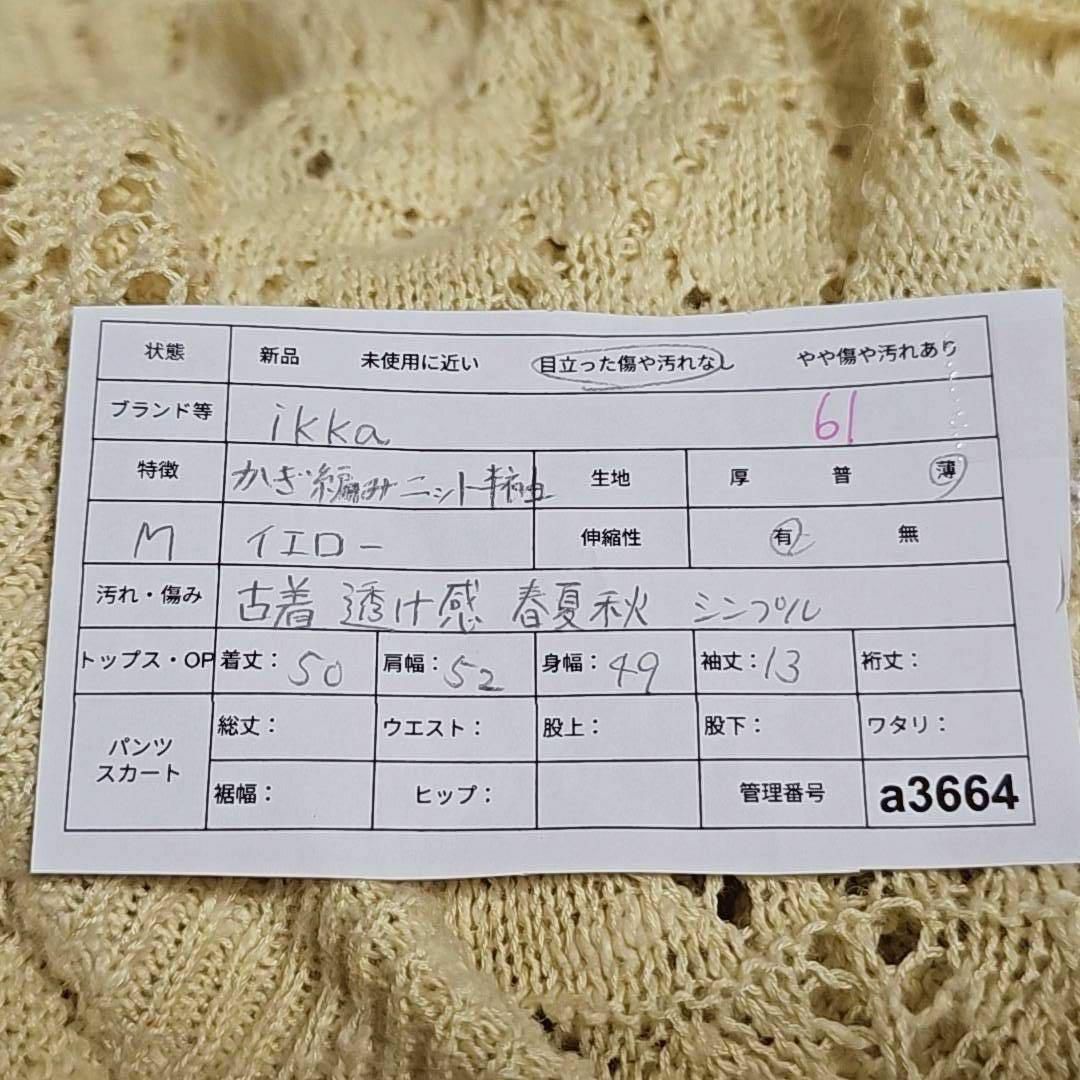 状態 新品 未使用に近い 目立った傷や汚れなし やや傷や汚れあり
ブランド等 ikka 61
特徴 かぎ編みニット半袖 生地 厚 普 薄
M イエロー 伸縮性 有 無
汚れ・傷み 古着 透け感 春夏秋 シンプル
トップス・OP 着丈：50 肩幅：52 身幅：49 袖丈：13 裄丈：
パンツ スカート 総丈： ウエスト： 股上： 股下： ワタリ：
裾幅： ヒップ： 管理番号 a3664